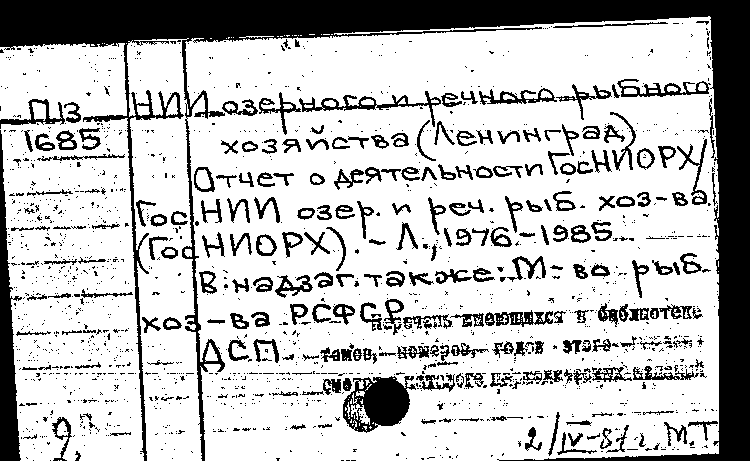 П13 НИИ озерного и речного рыбного
1685 хозяйства (Ленинград)
Отчет о деятельности ГосНИОРХ/
Гос. НИИ озер. и реч. рыб. хоз-ва
(ГосНИОРХ). - Л., 1976-1985
В надзаг. также: М-во рыб.
хоз-ва РСФСР
Перечень имеющихся в библиотеке
ДСП томов, номеров, годов этого
2/IV-87 г. М.Т.